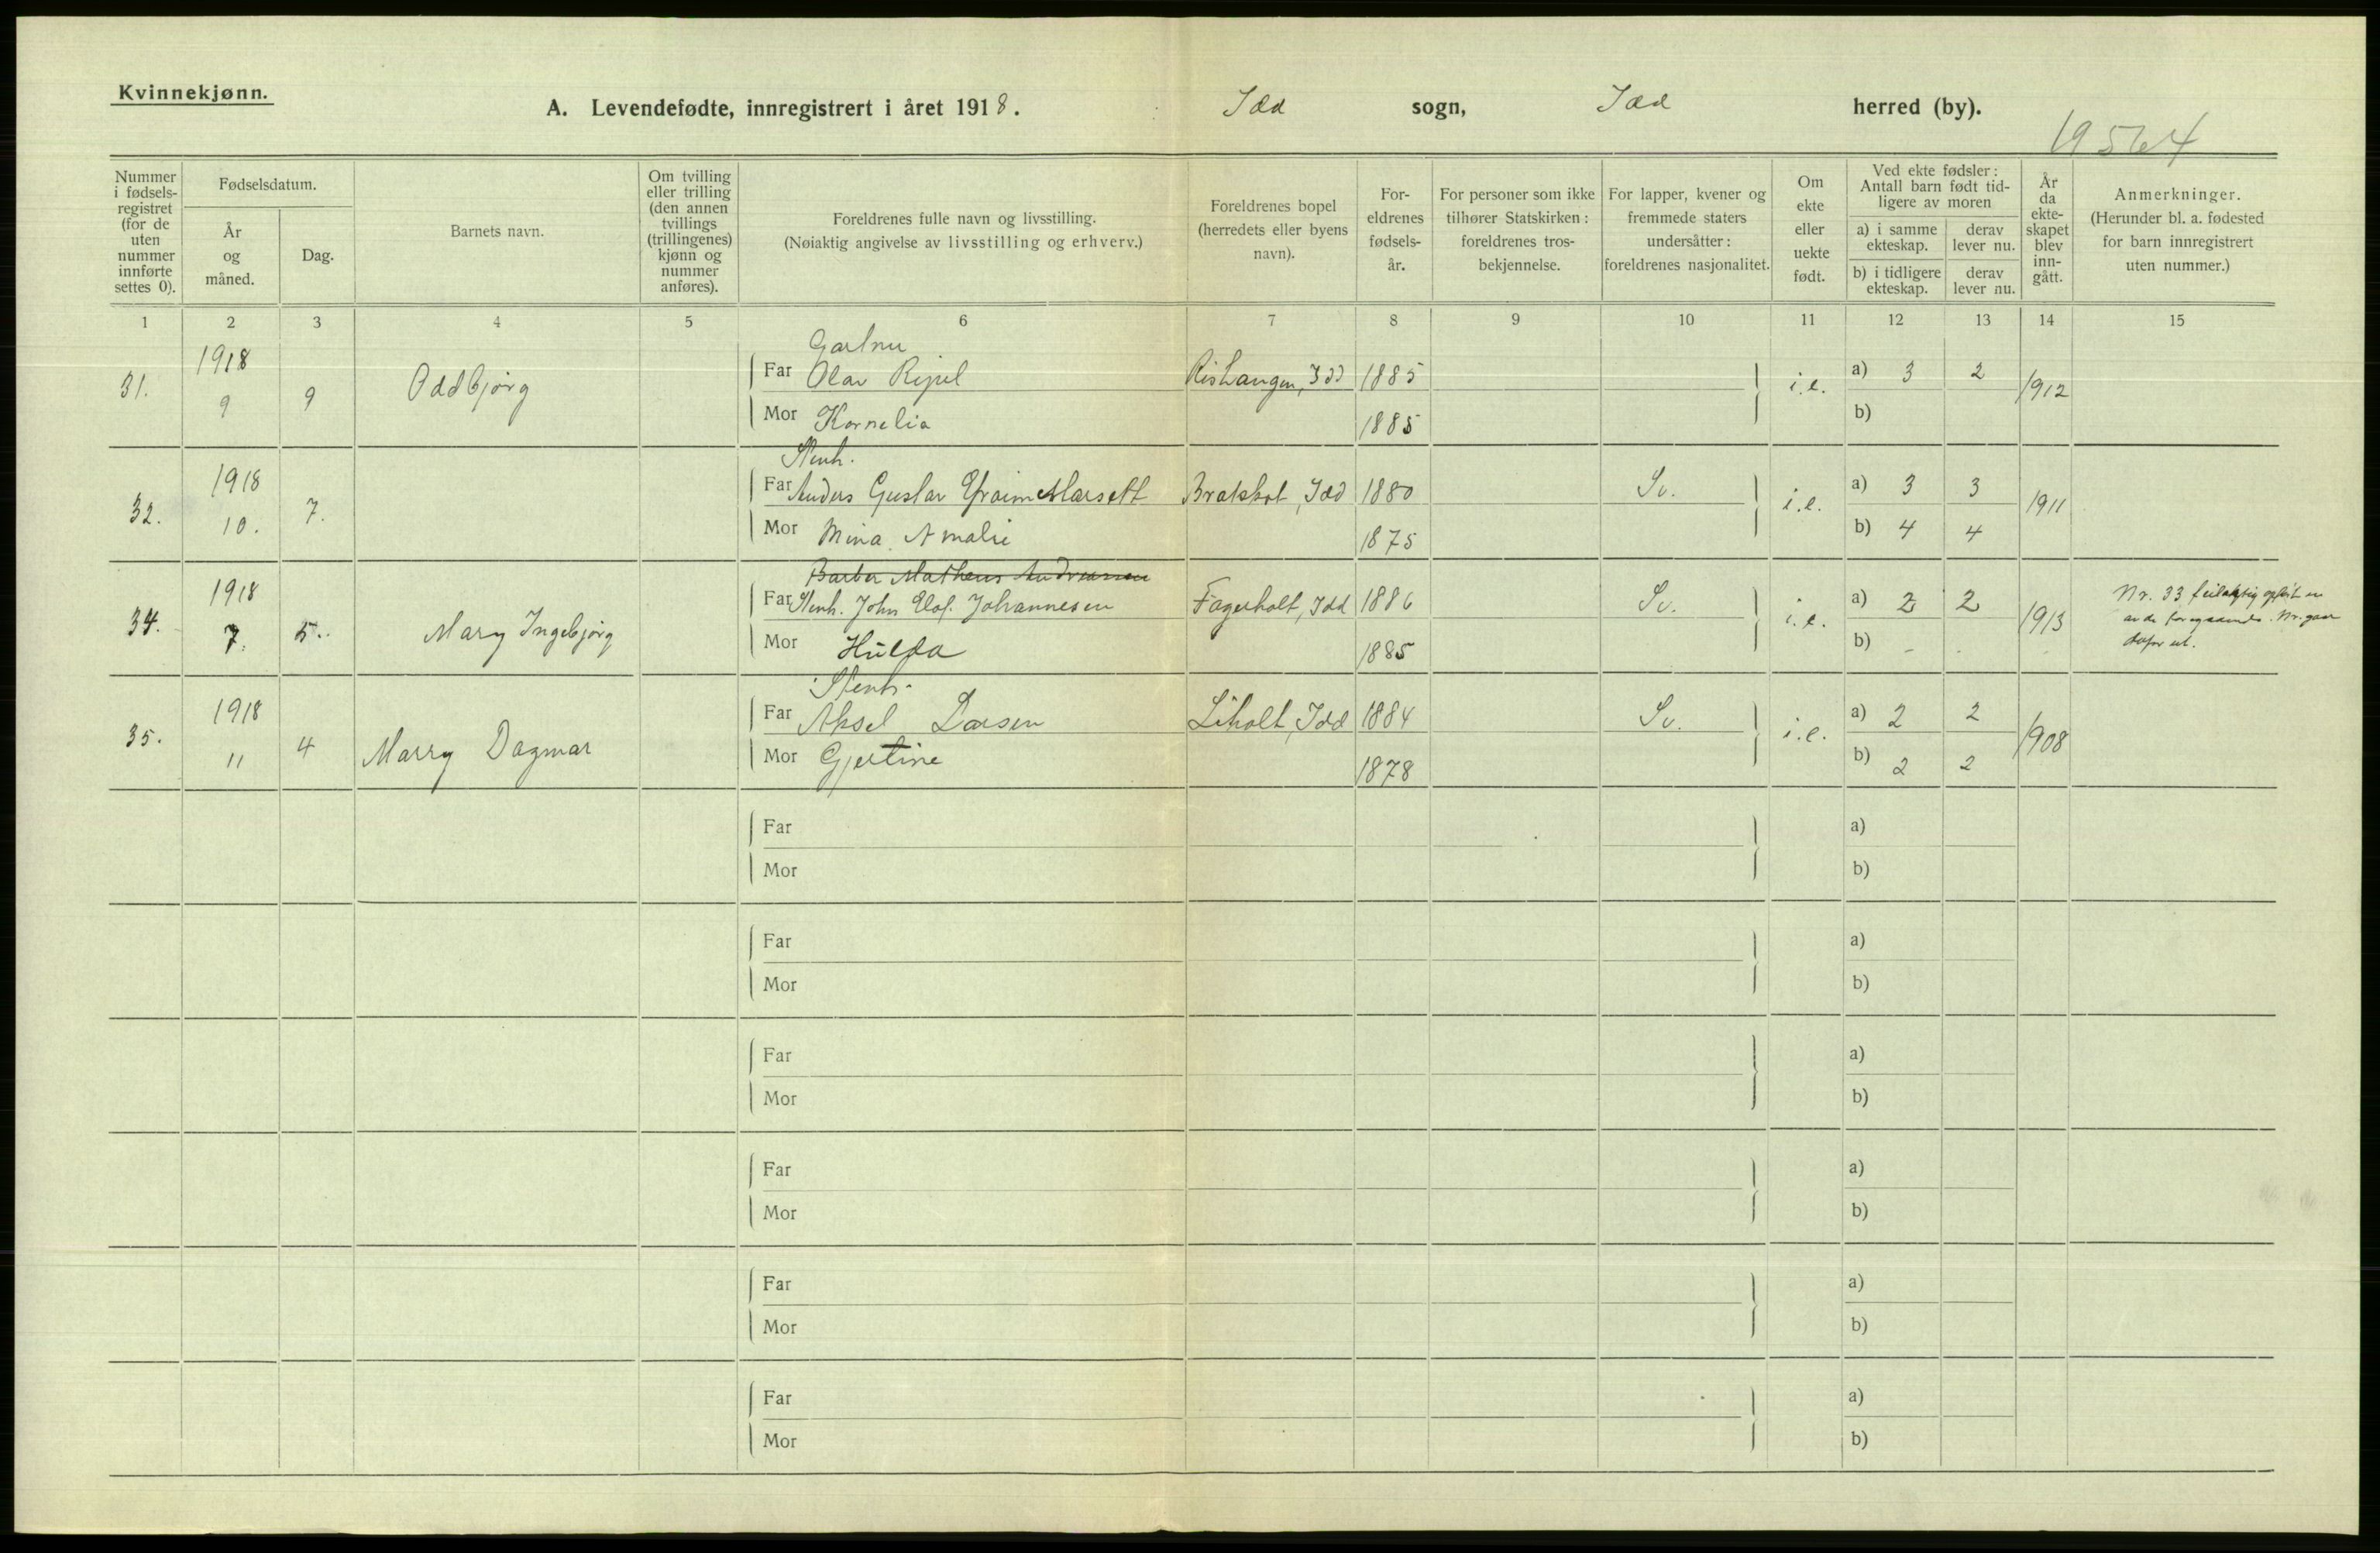 Kvinnekjønn.
A. Levendefødte, innregistrert i året 1918. Idd sogn, Idd herred (by).
19564
Nummer i fødselsregistret (for de uten nummer innførte settes 0).
Fødselsdatum.
År og måned.
Dag.
Barnets navn.
Om tvilling eller trilling (den annen tvillings (trillingenes) kjønn og nummer anføres).
Foreldrenes fulle navn og livsstilling.
(Nøiaktig angivelse av livsstilling og erhverv.)
Foreldrenes bopel (herredets eller byens navn).
Foreldrenes fødselsår.
For personer som ikke tilhører Statskirken: foreldrenes trosbekjennelse.
For lapper, kvener og fremmede staters undersåtter: foreldrenes nasjonalitet.
Om ekte eller uekte født.
Ved ekte fødsler: Antall barn født tidligere av moren
a) i samme ekteskap.
derav lever nu.
b) i tidligere ekteskap.
derav lever nu.
År da ekteskapet blev inngått.
Anmerkninger.
(Herunder bl. a. fødested for barn innregistrert uten nummer.)
1 2 3 4 5 6 7 8 9 10 11 12 13 14 15
Gartner
31. 1918 9 9 Oddbjørg Far Olav Far 1885 i.e. a) 3 2 1912
Mor Kornelia 1885 b)
Stenh.
32. 1918 10. 7. Far Anders Gustav Efraim Bratskot, Idd 1880 Sv. i.e. a) 3 3 1911
Mor Mina Amalie 1875 b) 4 4
34. 1918 7. 5. Mary Ingebjørg Far Stenh. John Elof Johannesen Fagerholt, Idd 1886 Sv. i.e. a) 2 2 1913 Nr. 33 feilagtig opført
Mor Hulda 1885 b) - -
Stenh.
35. 1918 11 4 Marry Dagmar Far Aksel Larsen Liholt, Idd 1884 Sv. i.e. a) 2 2 1908
Mor Gjertine 1878 b) 2 2
Far a)
Mor b)
Far a)
Mor b)
Far a)
Mor b)
Far a)
Mor b)
Far a)
Mor b)
Far a)
Mor b)